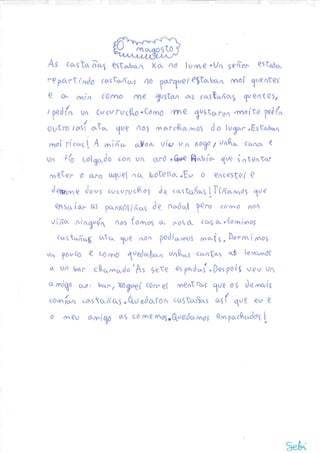 O magosto
As castañas estaban xa no lume. Un señor estaba
repartindo castañas no parque, estaban moi quentes
e a min como me gustan as castañas quentes,
pedín un cucurucho. Como me gustaron moito pedín
outro, así ata que nos marchamos do lugar. Estaban
moi ricas! A miña aboa viu un xogo, unha cana e
un fío colgado con un aro. Había que intentar
meter o aro aquel na botella. Eu o encestei e
déronme dous cucuruchos de castañas! Tiñamos que
ensaiar as panxoliñas de nadal pero como non
viña ninguén nos fomos a nosa casa. Comimos
castañas ata que non podiamos mais. Durmimos
un pouco e como quedaban unhas cantas as levamos
a un bar chamado "As sete espadas". Despois veu un
amigo ao bar, xoguei con el mentras que os demais
comían castañas. Quedaron castañas así que eu e
o meu amigo as comemos. Quedamos empachados!
Sebi